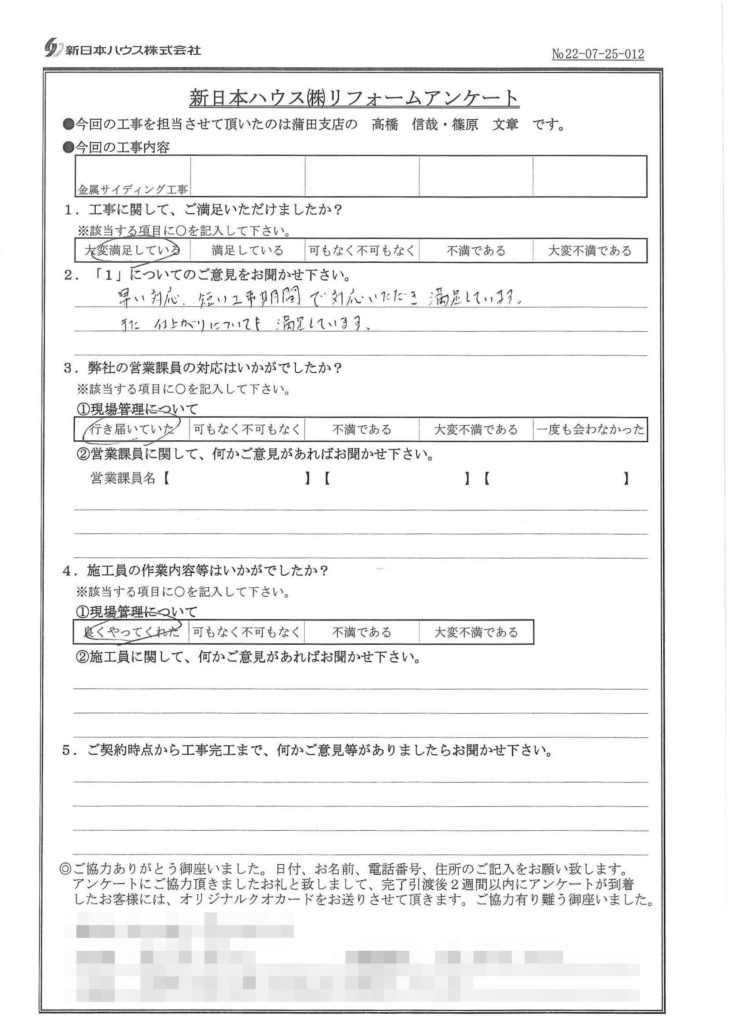 新日本ハウス株式会社
№22-07-25-012
新日本ハウス㈱リフォームアンケート
●今回の工事を担当させて頂いたのは蒲田支店の 髙橋 信哉・篠原 文章 です。
●今回の工事内容
金属サイディング工事
1．工事に関して、ご満足いただけましたか？
※該当する項目に○を記入して下さい。
大変満足している 満足している 可もなく不可もなく 不満である 大変不満である
2．「1」についてのご意見をお聞かせ下さい。
早い対応、短い工事期間で対応いただき満足しています。
また 仕上がりについても 満足しています。
3．弊社の営業課員の対応はいかがでしたか？
※該当する項目に○を記入して下さい。
①現場管理について
行き届いていた 可もなく不可もなく 不満である 大変不満である 一度も会わなかった
②営業課員に関して、何かご意見があればお聞かせ下さい。
営業課員名【 】【 】【 】
4．施工員の作業内容等はいかがでしたか？
※該当する項目に○を記入して下さい。
①現場管理について
良くやってくれた 可もなく不可もなく 不満である 大変不満である
②施工員に関して、何かご意見があればお聞かせ下さい。
5．ご契約時点から工事完工まで、何かご意見等がありましたらお聞かせ下さい。
◎ご協力ありがとう御座いました。日付、お名前、電話番号、住所のご記入をお願い致します。
アンケートにご協力頂きましたお礼と致しまして、完了引渡後2週間以内にアンケートが到着
したお客様には、オリジナルクオカードをお送りさせて頂きます。ご協力有り難う御座いました。